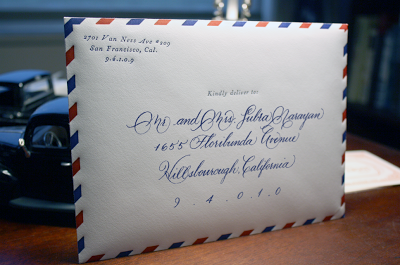 2701 Van Ness Ave #209
San Francisco, Cal.
9.4.1.0.9
Kindly deliver to:
Mr. and Mrs. Subra Narayan
1655 Floribunda Avenue
Hillsbourough, California
9 . 4 . 0 . 1 . 0